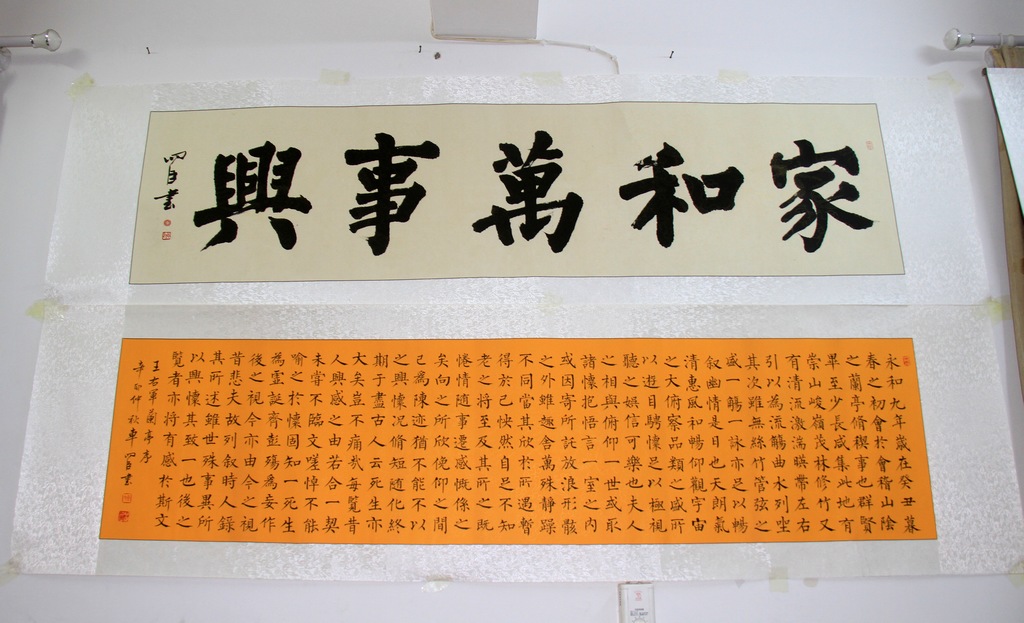 家和萬事興
書
永和九年歲在癸丑暮
春之初會於會稽山陰
之蘭亭脩稧事也群賢
畢至少長咸集此地有
崇山峻嶺茂林修竹又
有清流激湍暎帶左右
引以為流觴曲水列坐
其次雖無絲竹管弦之
盛一觴一詠亦足以暢
叙幽情是日也天朗氣
清惠風和暢仰觀宇宙
之大俯察品類之盛所
以遊目騁懷足以極視
聽之娛信可樂也夫人
之相與俯仰一世或取
諸懷抱悟言一室之內
或因寄所託放浪形骸
之外雖趣舍萬殊静躁
不同當其欣於所遇暫
得於己快然自足不知
老之將至及其所之既
惓情隨事遷感慨係之
矣向之所欣俛仰之間
已為陳迹猶不能不以
之興懷況脩短隨化終
期于盡古人云死生亦
大矣豈不痛哉每覧昔
人興感之由若合一契
未嘗不臨文嗟悼不能
喻之於懷固知一死生
為虛誕齊彭殤為妄作
後之視今亦由今之視
昔悲夫故列叙時人錄
其所述雖世殊事異所
以興懷其致一也後之
覧者亦將有感於斯文
王右軍蘭亭序
辛卯仲秋車書